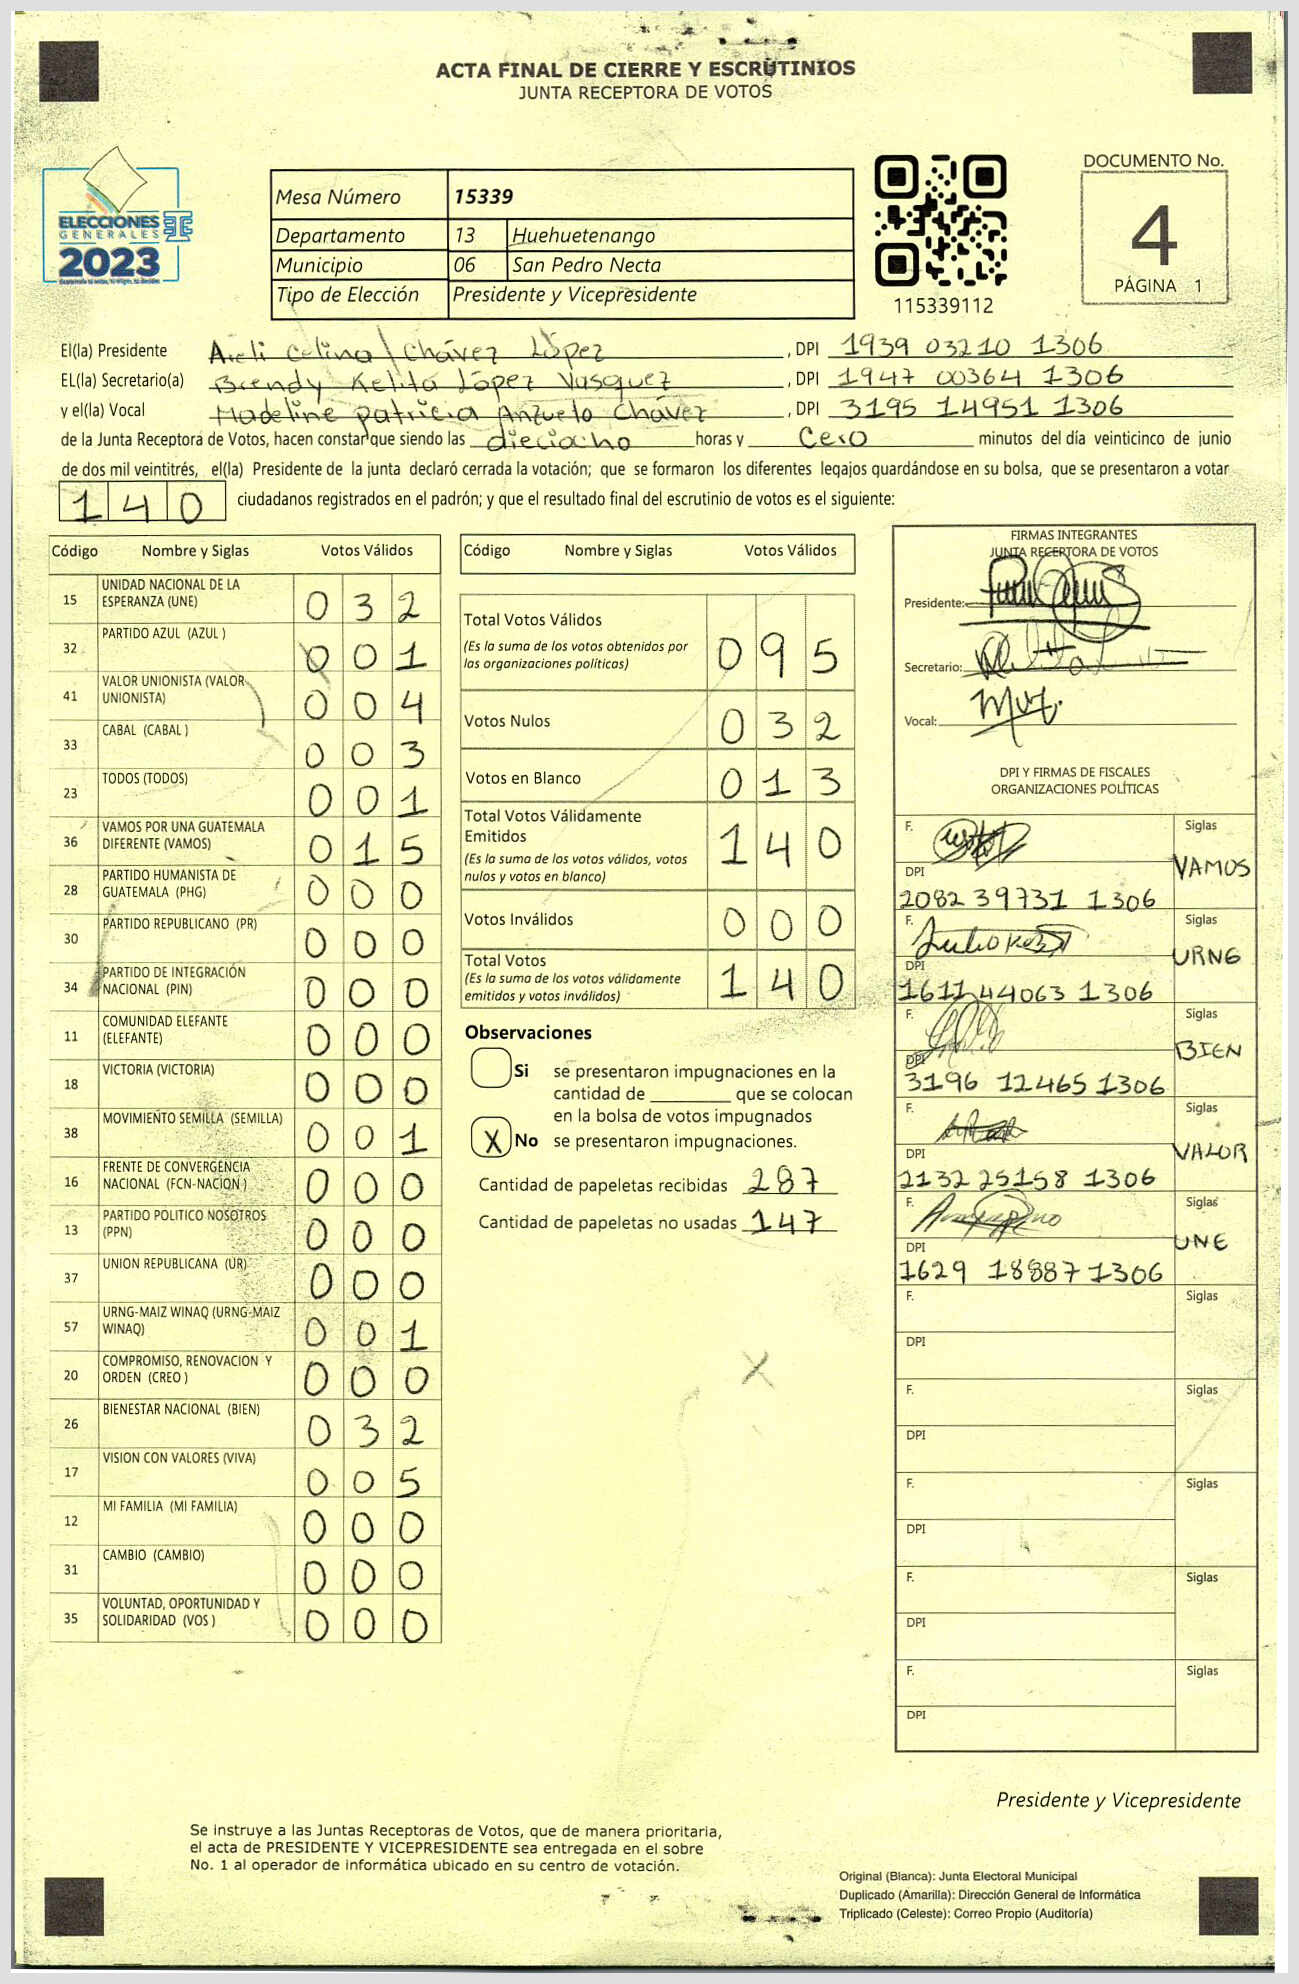 ACTA FINAL DE CIERRE Y ESCRUTINIOS
JUNTA RECEPTORA DE VOTOS
ELECCIONES
GENERALES
2023
Mesa Número 15339
Departamento 13 Huehuetenango
Municipio 06 San Pedro Necta
Tipo de Elección Presidente y Vicepresidente
115339112
DOCUMENTO No.
4
PÁGINA 1
El(la) Presidente Celina Chávez López , DPI 1939 03210 1306
EL(la) Secretario(a) Brendy Kelita López Vasquez , DPI 1947 00364 1306
y el(la) Vocal Madeline Patricia Anzueto Chávez , DPI 3195 14951 1306
de la Junta Receptora de Votos, hacen constar que siendo las dieciocho horas y Cero minutos del día veinticinco de junio
de dos mil veintitrés, el(la) Presidente de la junta declaró cerrada la votación; que se formaron los diferentes legajos guardándose en su bolsa, que se presentaron a votar
140 ciudadanos registrados en el padrón; y que el resultado final del escrutinio de votos es el siguiente:
Código Nombre y Siglas Votos Válidos
15 UNIDAD NACIONAL DE LA ESPERANZA (UNE) 032
32 PARTIDO AZUL (AZUL ) 001
41 VALOR UNIONISTA (VALOR UNIONISTA) 004
33 CABAL (CABAL ) 003
23 TODOS (TODOS) 001
36 VAMOS POR UNA GUATEMALA DIFERENTE (VAMOS) 015
28 PARTIDO HUMANISTA DE GUATEMALA (PHG) 000
30 PARTIDO REPUBLICANO (PR) 000
34 PARTIDO DE INTEGRACIÓN NACIONAL (PIN) 000
11 COMUNIDAD ELEFANTE (ELEFANTE) 000
18 VICTORIA (VICTORIA) 000
38 MOVIMIENTO SEMILLA (SEMILLA) 001
16 FRENTE DE CONVERGENCIA NACIONAL (FCN-NACION ) 000
13 PARTIDO POLITICO NOSOTROS (PPN) 000
37 UNION REPUBLICANA (UR) 000
57 URNG-MAIZ WINAQ (URNG-MAIZ WINAQ) 001
20 COMPROMISO, RENOVACION Y ORDEN (CREO ) 000
26 BIENESTAR NACIONAL (BIEN) 032
17 VISION CON VALORES (VIVA) 005
12 MI FAMILIA (MI FAMILIA) 000
31 CAMBIO (CAMBIO) 000
35 VOLUNTAD, OPORTUNIDAD Y SOLIDARIDAD (VOS ) 000
Código Nombre y Siglas Votos Válidos
Total Votos Válidos 095
(Es la suma de los votos obtenidos por
las organizaciones políticas)
Votos Nulos 032
Votos en Blanco 013
Total Votos Válidamente
Emitidos 140
(Es la suma de los votos válidos, votos
nulos y votos en blanco)
Votos Inválidos 000
Total Votos 140
(Es la suma de los votos válidamente
emitidos y votos inválidos)
Observaciones
Si se presentaron impugnaciones en la
cantidad de ________ que se colocan
en la bolsa de votos impugnados
X No se presentaron impugnaciones.
Cantidad de papeletas recibidas 287
Cantidad de papeletas no usadas 147
X
FIRMAS INTEGRANTES
JUNTA RECEPTORA DE VOTOS
Presidente:
Secretario:
Vocal:
DPI Y FIRMAS DE FISCALES
ORGANIZACIONES POLÍTICAS
F. Siglas
VAMOS
DPI
2082 39731 1306
F. Siglas
URNG
DPI
1611 44063 1306
F. Siglas
BIEN
DPI
3196 12465 1306
F. Siglas
VALOR
DPI
2132 25158 1306
F. Siglas
UNE
DPI
1629 18887 1306
F. Siglas
DPI
F. Siglas
DPI
F. Siglas
DPI
F. Siglas
DPI
F. Siglas
DPI
Presidente y Vicepresidente
Se instruye a las Juntas Receptoras de Votos, que de manera prioritaria,
el acta de PRESIDENTE Y VICEPRESIDENTE sea entregada en el sobre
No. 1 al operador de informática ubicado en su centro de votación.
Original (Blanca): Junta Electoral Municipal
Duplicado (Amarilla): Dirección General de Informática
Triplicado (Celeste): Correo Propio (Auditoría)